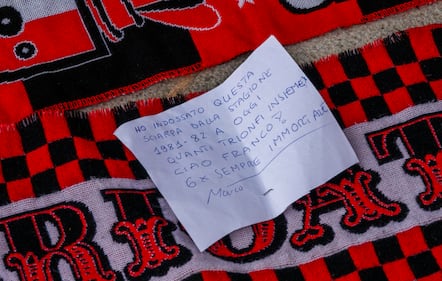 HO INDOSSATO QUESTA
SCIARPA DALLA STAGIONE
1981-82 A OGGI
QUANTI TRIONFI INSIEME!
CIAO FRANCO
6 X SEMPRE IMMORTALE
Marco
RIOAT